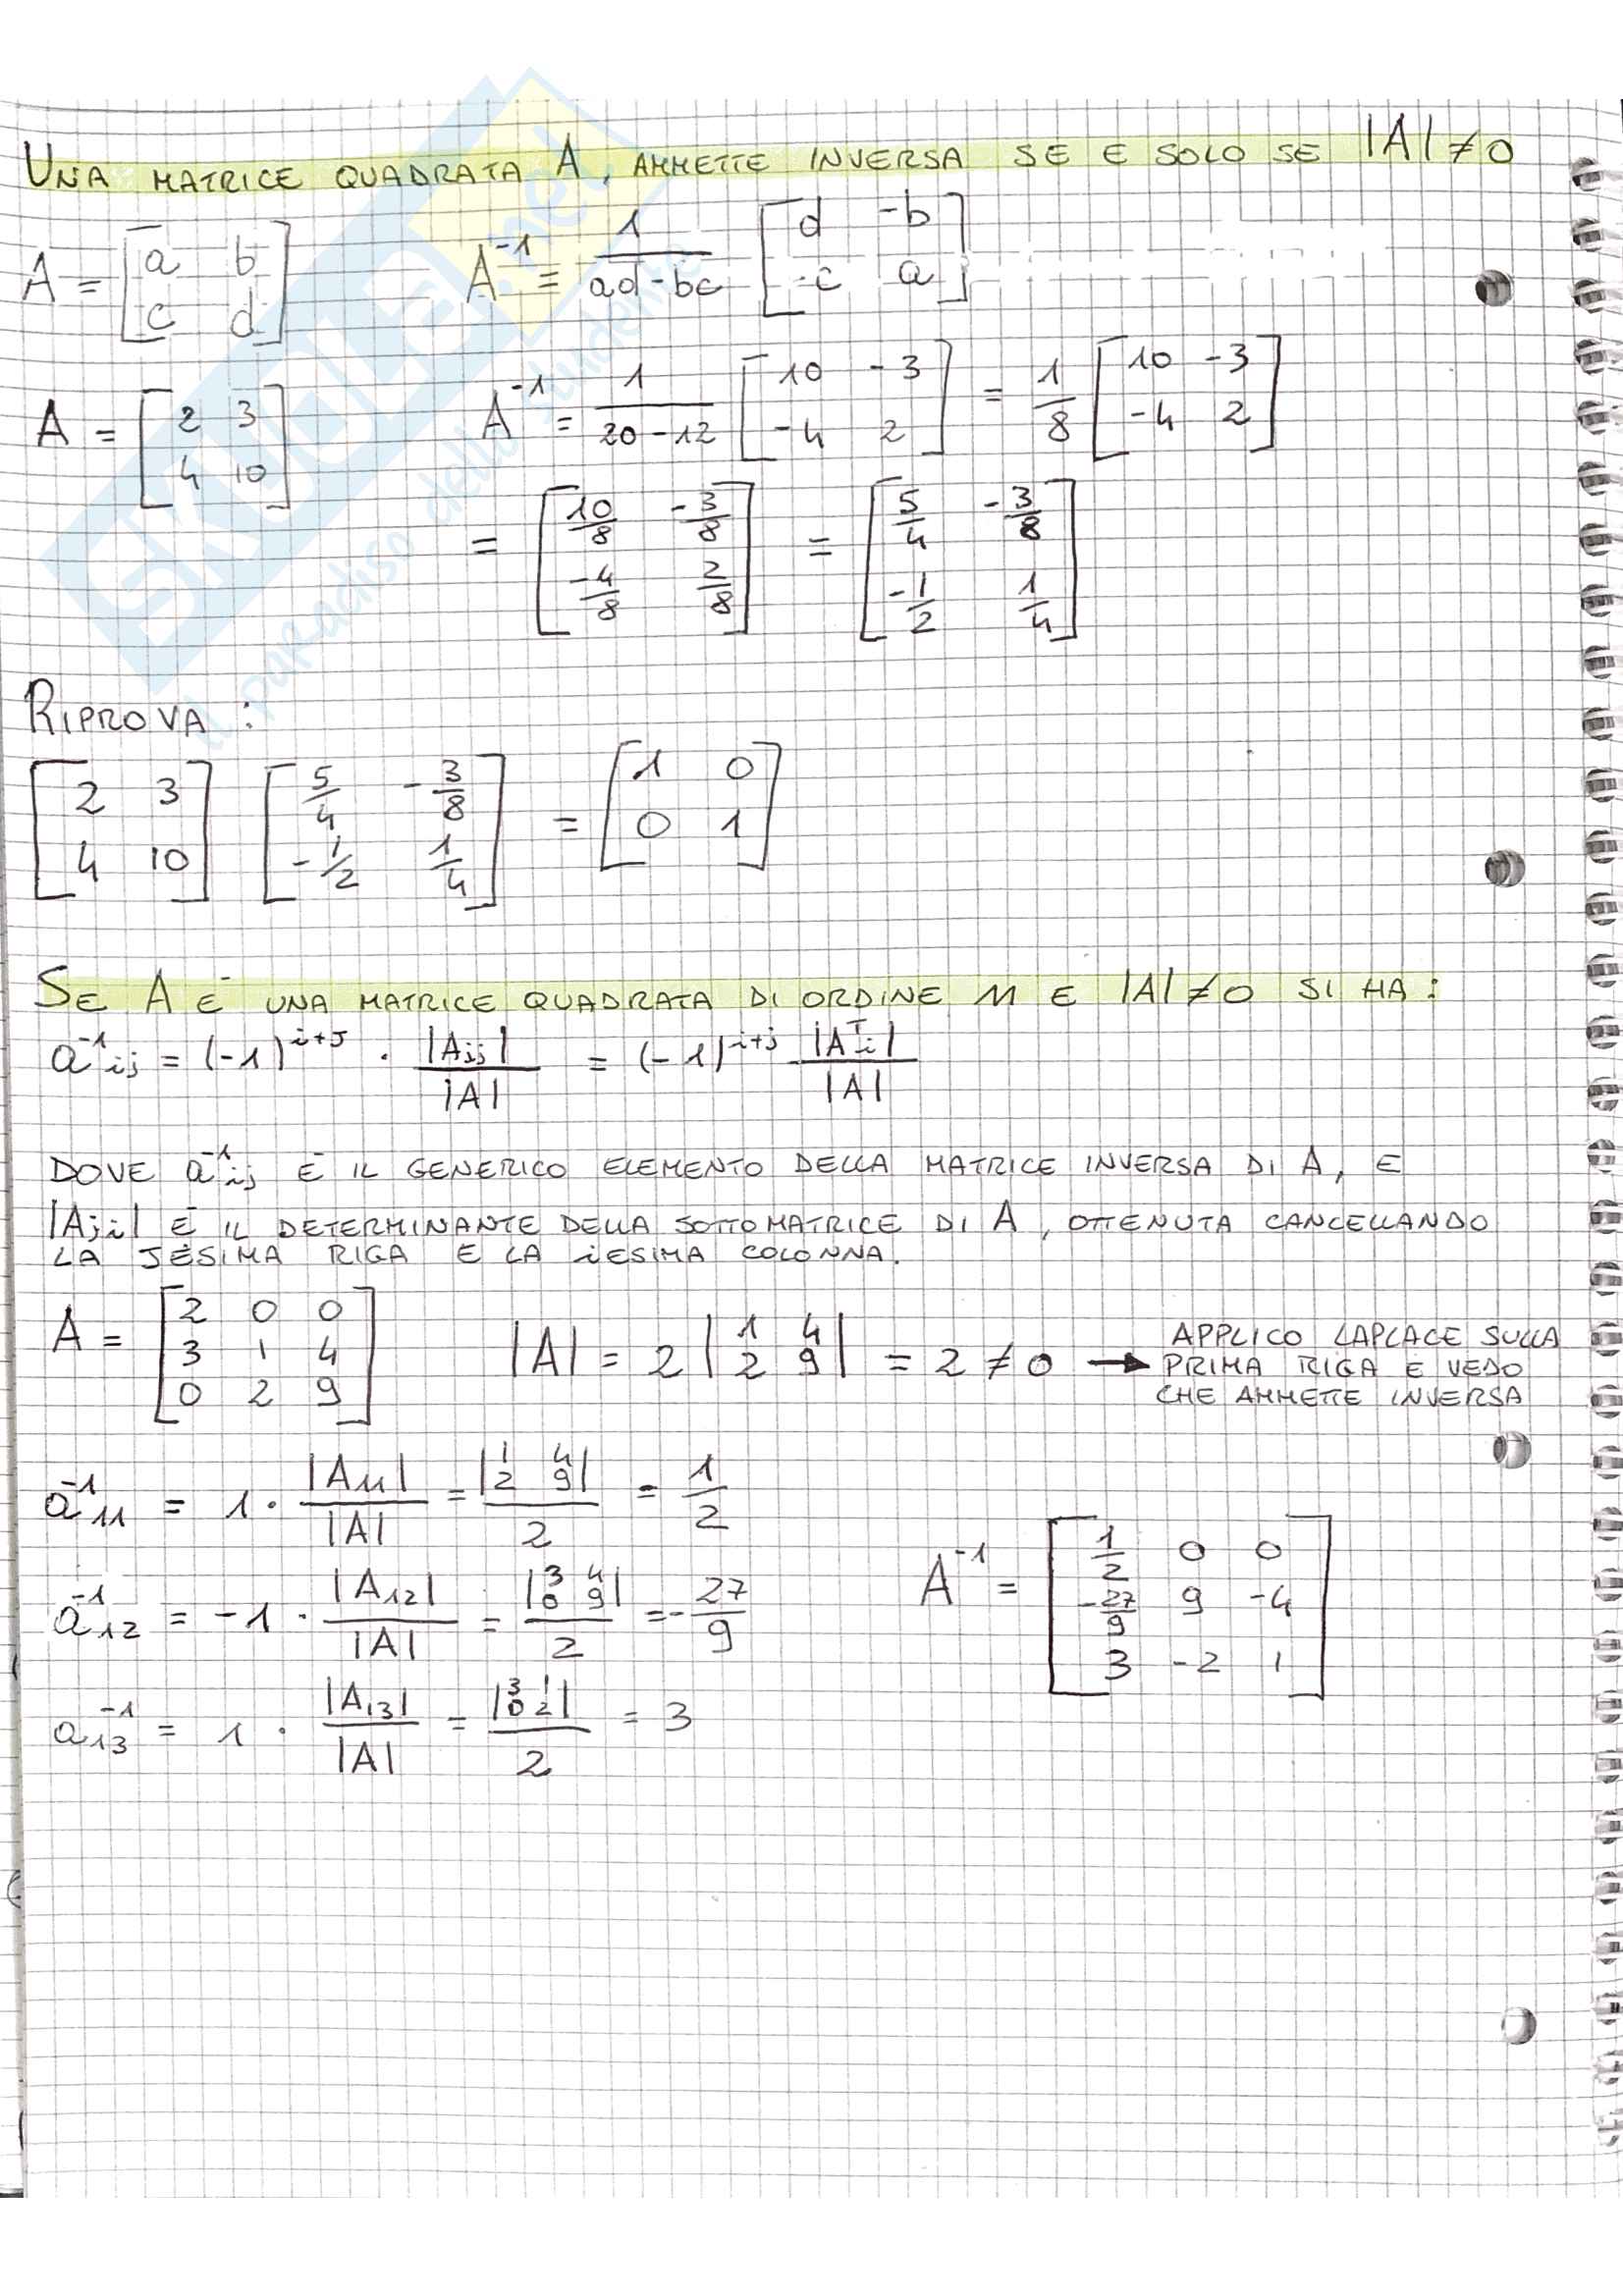 UNA MATRICE QUADRATA A, AMMETTE INVERSA SE E SOLO SE |A| ≠ 0
A = [a b; c d]   A⁻¹ = 1/(ad-bc) [d -b; -c a]
A = [2 3; 4 10]   A⁻¹ = 1/(20-12) [10 -3; -4 2] = 1/8 [10 -3; -4 2]
= [10/8 -3/8; -4/8 2/8] = [5/4 -3/8; -1/2 1/4]
RIPROVA:
[2 3; 4 10] [5/4 -3/8; -1/2 1/4] = [1 0; 0 1]
SE A È UNA MATRICE QUADRATA DI ORDINE M E |A| ≠ 0 SI HA:
a⁻¹ij = (-1)^(i+j) · |Aji|/|A| = (-1)^(i+j) |Aᵀi|/|A|
DOVE a⁻¹ij È IL GENERICO ELEMENTO DELLA MATRICE INVERSA DI A, E
|Aji| È IL DETERMINANTE DELLA SOTTOMATRICE DI A, OTTENUTA CANCELLANDO
LA JESIMA RIGA E LA iESIMA COLONNA.
A = [2 0 0; 3 1 4; 0 2 9]   |A| = 2 |1 4; 2 9| = 2 ≠ 0 → APPLICO LAPLACE SULLA
PRIMA RIGA E VEDO
CHE AMMETTE INVERSA
a⁻¹11 = 1 · |A11|/|A| = |1 4; 2 9|/2 = 1/2
a⁻¹12 = -1 · |A12|/|A| = |3 4; 0 9|/2 = -27/9
a⁻¹13 = 1 · |A13|/|A| = |3 1; 0 2|/2 = 3
A⁻¹ = [1/2 0 0; -27/9 9 -4; 3 -2 1]
SKUOLA.net
il paradiso dello studente